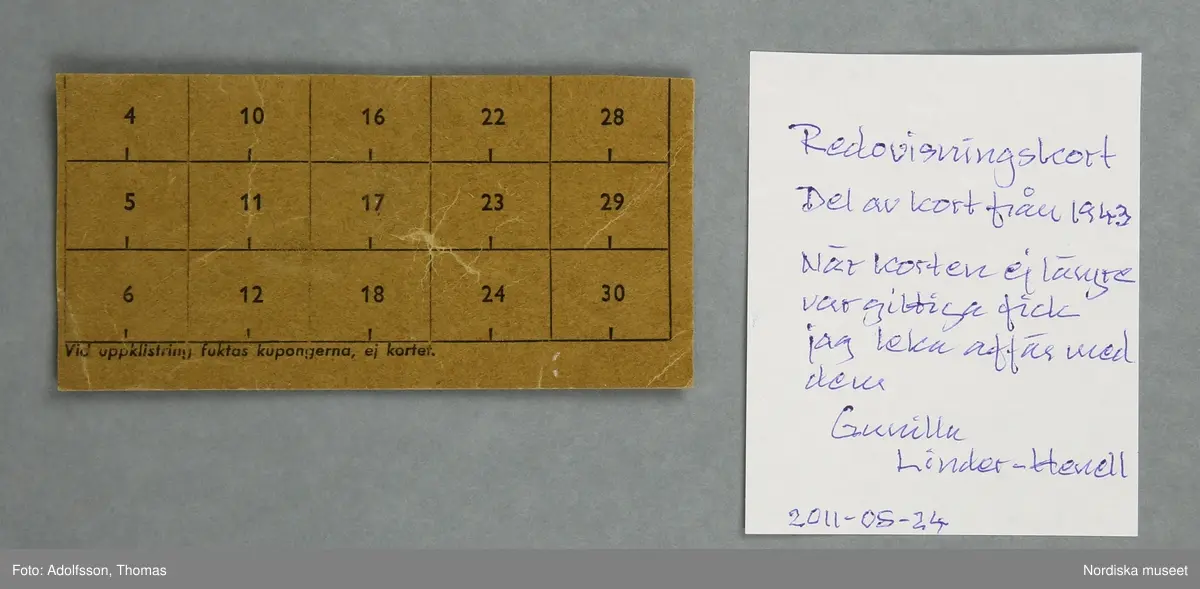 4 10 16 22 28
5 11 17 23 29
6 12 18 24 30
Vid uppklistring fuktas kupongerna, ej kortet.
Redovisningskort
Del av kort från 1943
När korten ej längre
var giltiga fick
jag leka affär med
dem
Gunilla
Linder-Henell
2011-05-24
Foto: Adolfsson, Thomas
Nordiska museet